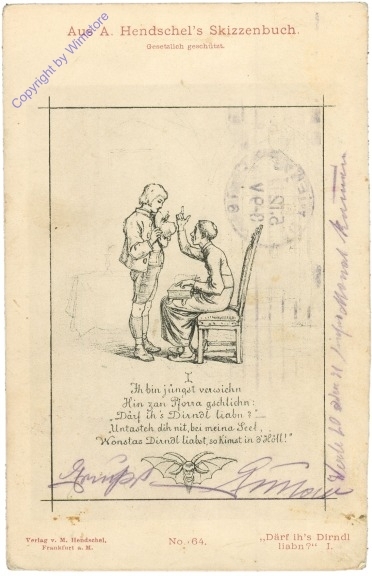 Aus A. Hendschel's Skizzenbuch.
Gesetzlich geschützt.
Copyright by Winstore
I
Ih bin jüngst verwichn
Hin zan Pforra gschlichn:
„Därf ih's Dirndl liabn?"
„Untasteh dih nit, bei meina Seel,
"Wonstas Dirndl liabst, so kimst in d'Höll!"
Verlag v. M. Hendschel,
Frankfurt a. M.
No. 64.
„Därf ih's Dirndl
liabn?" I.